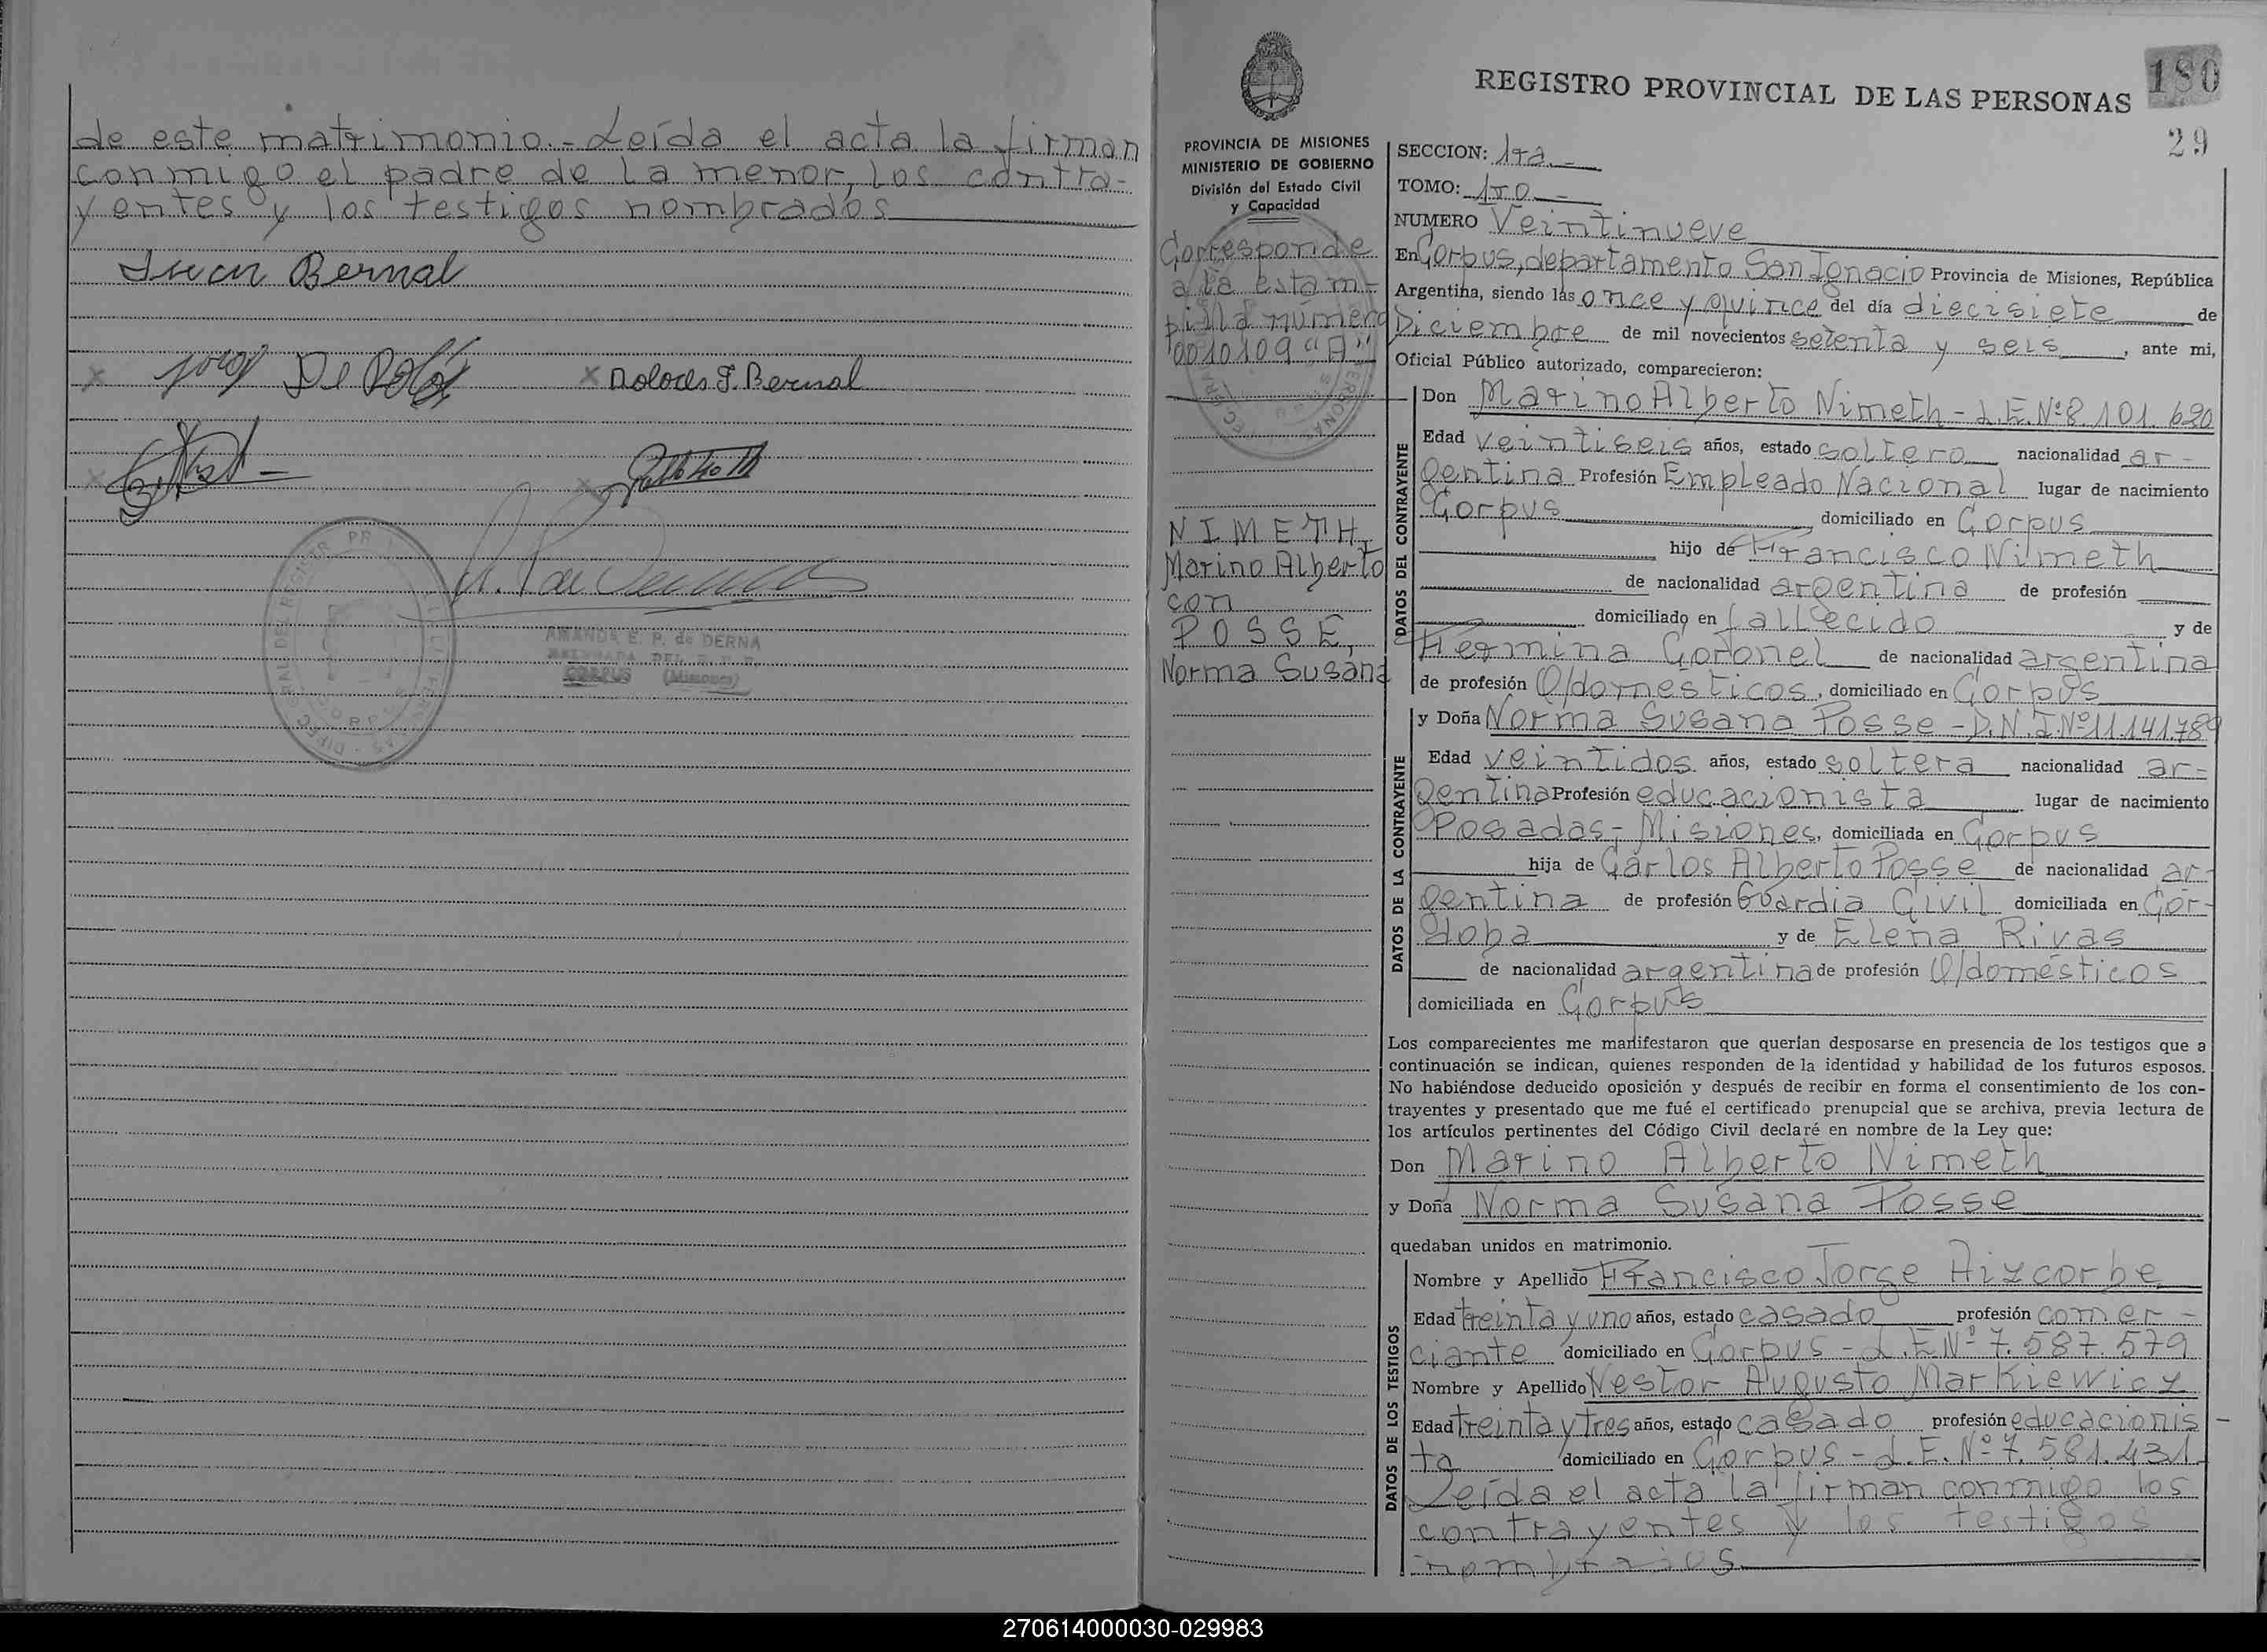 de este matrimonio.- Leída el acta la firman
conmigo el padre de la menor, los contra-
yentes y los testigos nombrados
Juan Bernal
Dolores F. Bernal
AMANDA E. P. de DERNA
CORPUS (Misiones)
REGISTRO PROVINCIAL DE LAS PERSONAS
180
29
PROVINCIA DE MISIONES
MINISTERIO DE GOBIERNO
División del Estado Civil
y Capacidad
Corresponde
a la estam-
pilla número
0010109 "A"
NIMETH,
Marino Alberto
con
POSSE,
Norma Susana
SECCION: 1ra.-
TOMO: 1ro.-
NUMERO Veintinueve
En Corpus, departamento San Ignacio Provincia de Misiones, República
Argentina, siendo las once y quince del día diecisiete de
Diciembre de mil novecientos setenta y seis, ante mi,
Oficial Público autorizado, comparecieron:
DATOS DEL CONTRAYENTE
Don Marino Alberto Nimeth - L.E.Nº 8.101.620
Edad veintiseis años, estado soltero nacionalidad ar-
gentina Profesión Empleado Nacional lugar de nacimiento
Corpus, domiciliado en Corpus
hijo de Francisco Nimeth
de nacionalidad argentina de profesión
domiciliado en fallecido y de
Hermina Coronel de nacionalidad argentina
de profesión Q/domesticos, domiciliado en Corpus
DATOS DE LA CONTRAYENTE
y Doña Norma Susana Posse - D.N.I.Nº 11.141.789
Edad veintidos años, estado soltera nacionalidad ar-
gentina Profesión educacionista lugar de nacimiento
Posadas - Misiones, domiciliada en Corpus
hija de Carlos Alberto Posse de nacionalidad ar-
gentina de profesión Guardia Civil domiciliada en Cór-
doba y de Elena Rivas
de nacionalidad argentina de profesión Q/domésticos
domiciliada en Corpus
Los comparecientes me manifestaron que querían desposarse en presencia de los testigos que a
continuación se indican, quienes responden de la identidad y habilidad de los futuros esposos.
No habiéndose deducido oposición y después de recibir en forma el consentimiento de los con-
trayentes y presentado que me fué el certificado prenupcial que se archiva, previa lectura de
los artículos pertinentes del Código Civil declaré en nombre de la Ley que:
Don Marino Alberto Nimeth
y Doña Norma Susana Posse
quedaban unidos en matrimonio.
DATOS DE LOS TESTIGOS
Nombre y Apellido Francisco Jorge Aizcorbe
Edad treinta y uno años, estado casado profesión comer-
ciante domiciliado en Corpus - L.E.Nº 7.587.579
Nombre y Apellido Nestor Augusto Markiewicz
Edad treinta y tres años, estado casado profesión educacionis-
ta domiciliado en Corpus - L.E.Nº 7.581.431
Leída el acta la firman conmigo los
contrayentes y los testigos
nombrados
270614000030-029983